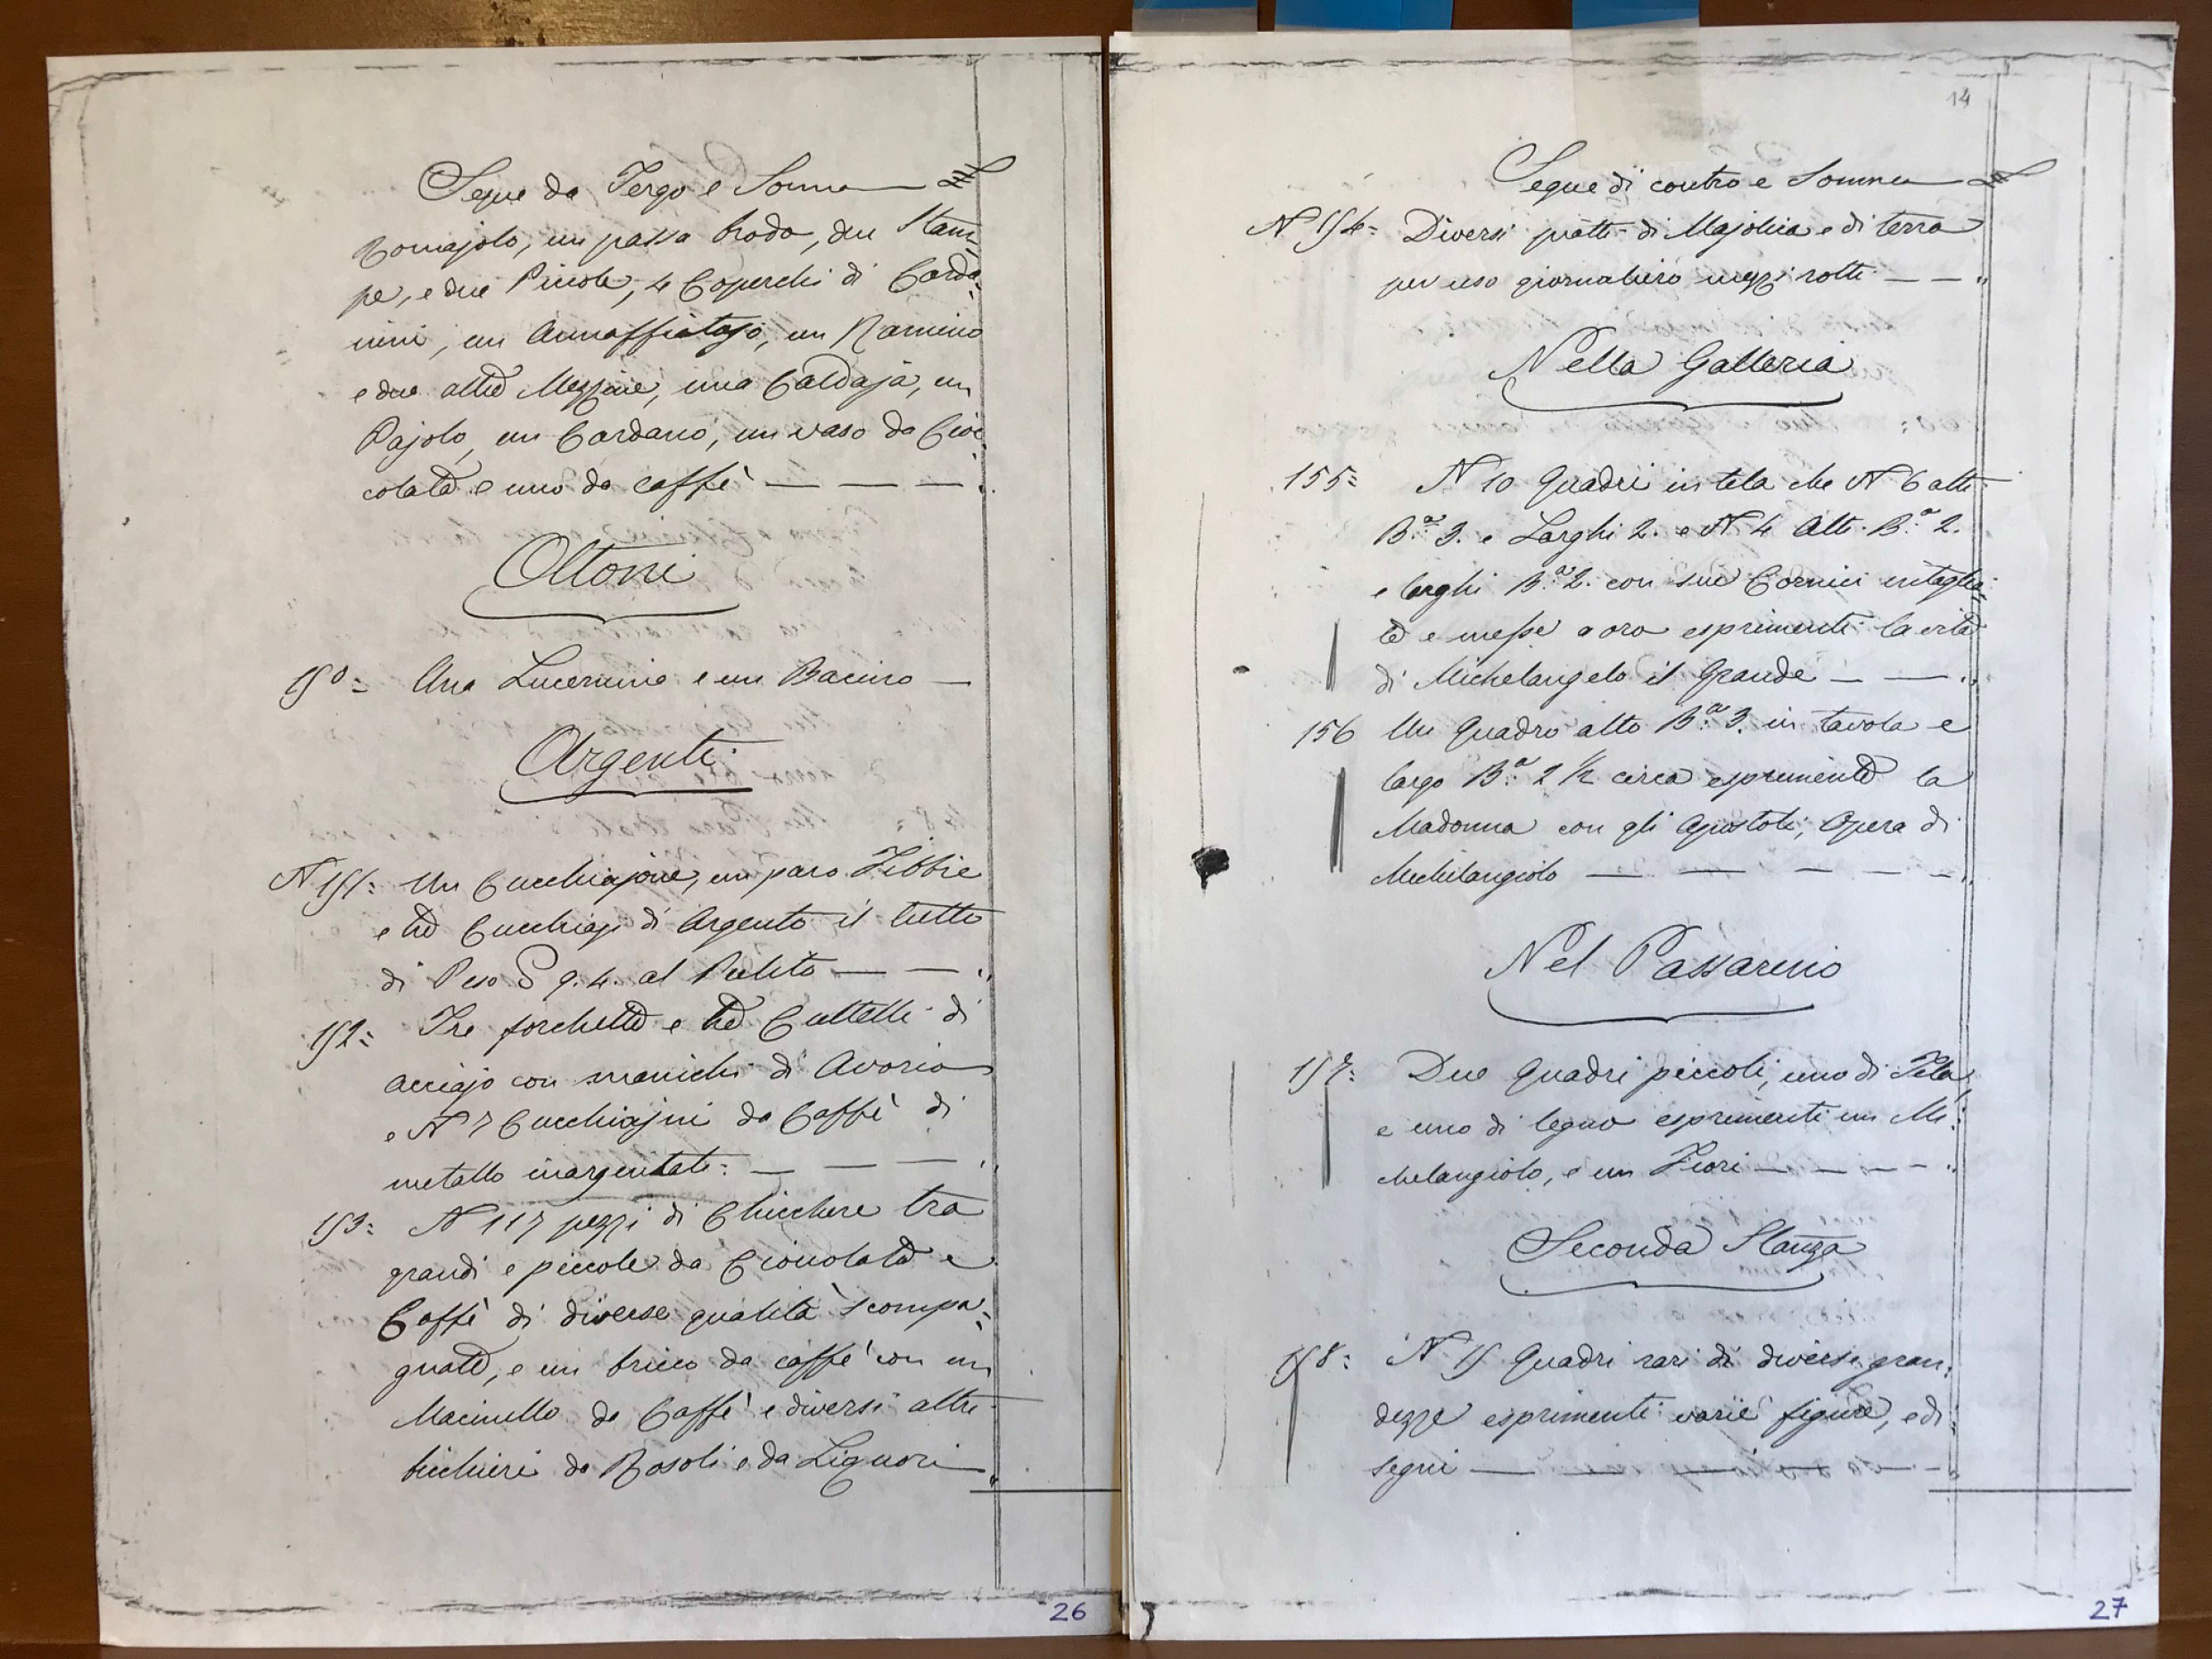 Segue da Tergo e Somma
Romajolo, un passa brodo, due Stam=
pe, e due Piccole, 4 Coperchi di Carda=
nini, un Annaffiatojo, un Ramino
e due altre Mezzine, una Caldaja, un
Pajolo, un Cardano, un vaso da Cioc=
colata e uno da caffè
Ottoni
150= Una Lucernina e un Bacino
Argenti
N 151= Un Cucchiajone, un paro Fibbie
e tre Cucchiaj di Argento il tutto
di Peso 9. 4. al Pulito
152= Tre forchette e tre Cultelli di
acciajo con manichi di Avorio
e N 7 Cucchiajni da Caffè di
metallo inargentati=
153= N 117 pezzi di Chicchere tra
grandi e piccole da Cioccolata e
Caffè di diverse qualità scompa=
gnate, e un bricco da caffè con un
Macinello da Caffè e diversi altri
bicchieri da Rosoli e da Liquori
26
14
Segue di contro e Somma
N 154= Diversi piatti di Majolica e di terra
per uso giornaliero mezzi rotti
Nella Galleria
155= N 10 Quadri in tela che N 6 alti
B.a 3. e Larghi 2. e N 4 Alti B.a 2.
e larghi B.a 2. con sue Cornici intaglia=
te e messe a oro esprimenti la vita
di Michelangelo il Grande
156 Un Quadro alto B.a 3. in tavola e
largo B.a 2 1/2 circa esprimente la
Madonna con gli Apostoli, Opera di
Michilangiolo
Nel Passarino
157= Due Quadri piccoli, uno di Tela
e uno di legno esprimenti un Mi=
chelangiolo, e un Fiori
Seconda Stanza
158= N 15 Quadri rari di diverse gran=
dezze esprimenti varie figure, e di=
segni
27